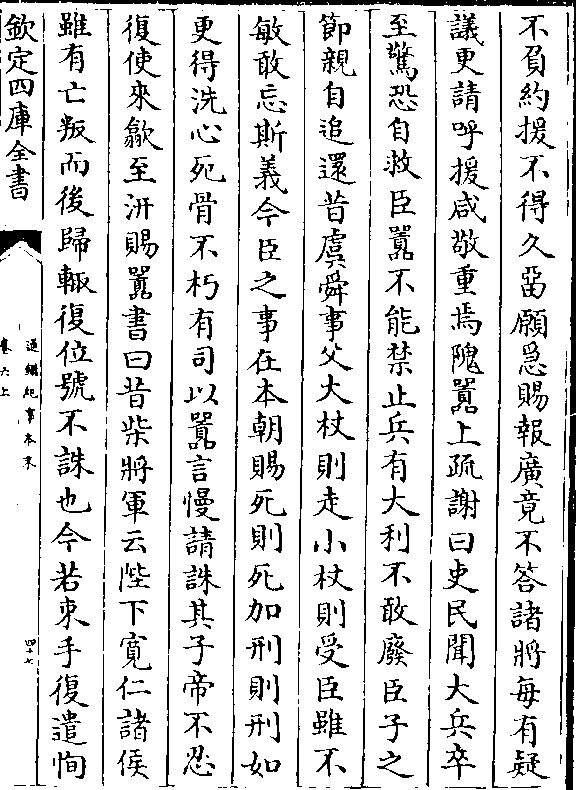 不負約援不得久畱願急賜報廣竟不答諸將每有疑
議更請呼援咸敬重焉隗囂上疏謝曰吏民聞大兵卒
至驚恐自救臣囂不能禁止兵有大利不敢廢臣子之
節親自追還昔虞舜事父大杖則走小杖則受臣雖不
敏敢忘斯義今臣之事在本朝賜死則死加刑則刑如
更得洗心死骨不朽有司以囂言慢請誅其子帝不忍
復使來歙至汧賜囂書曰昔柴將軍云陛下寛仁諸侯
雖有亡叛而後歸輒復位號不誅也今若束手復遣恂
欽定四庫全書
通鑑紀事本末
卷六上
四十七